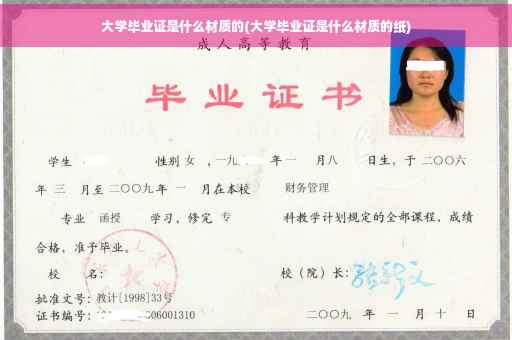 大学毕业证是什么材质的(大学毕业证是什么材质的纸)
成人高等教育
毕业证书
学生 性别 女 ，一九 年一 月八 日生，于二〇〇六
年 三 月至二〇〇九年 一 月在本校 财务管理
专业 函授 学习，修完 专 科教学计划规定的全部课程，成绩
合格，准予毕业。
校 名： 校（院）长：
批准文号：教计[1998]33号
证书编号： 06001310 二〇〇九 年 一 月 十 日